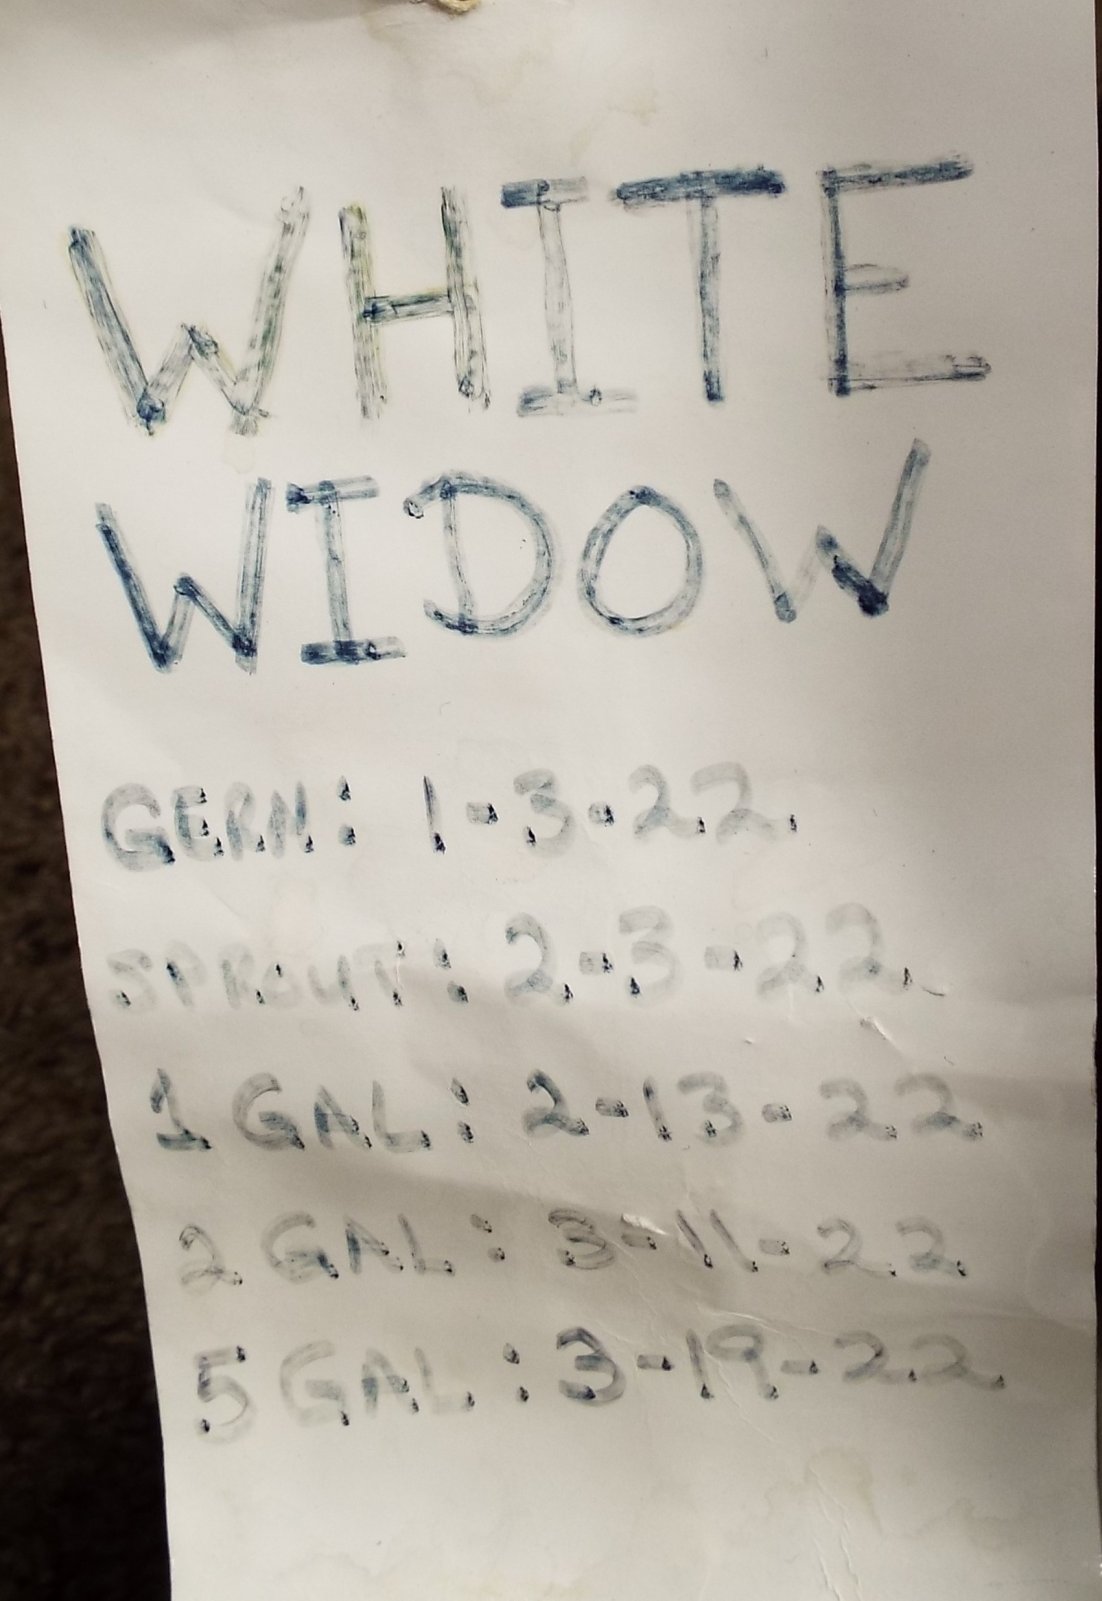 WHITE
WIDOW
GERM: 1-3-22.
SPROUT: 2-3-22.
1 GAL: 2-13-22.
2 GAL: 3-11-22.
5 GAL: 3-19-22.